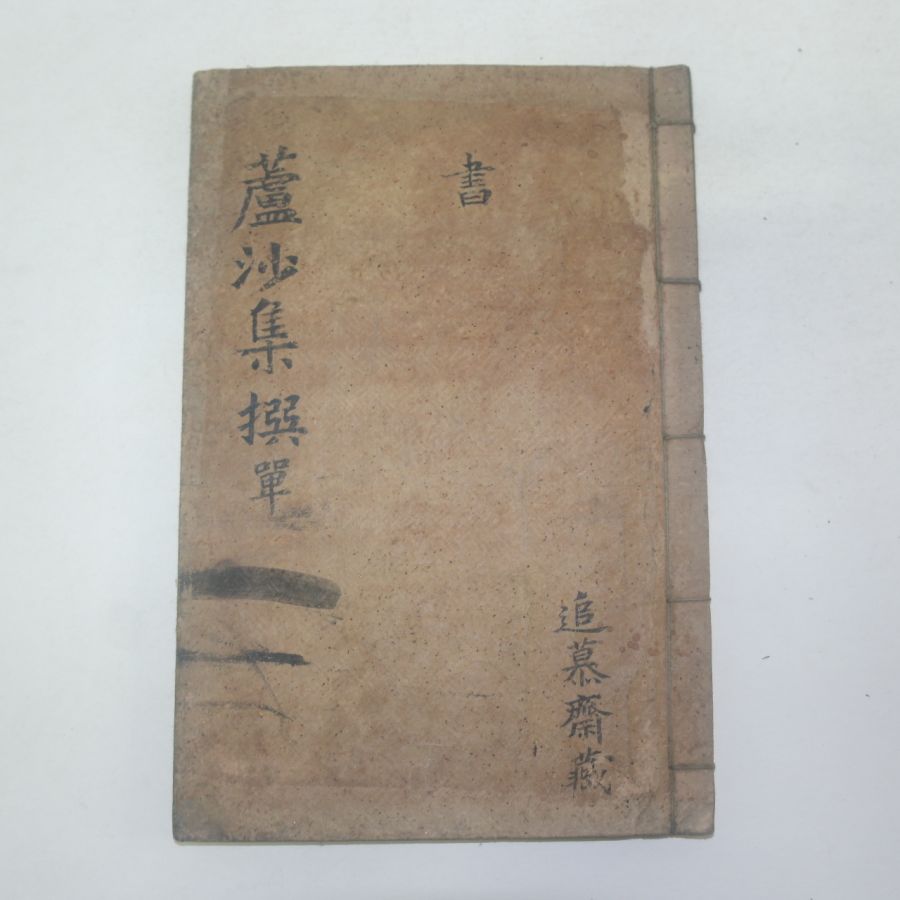 書
蘆沙集撰單
追慕齋藏